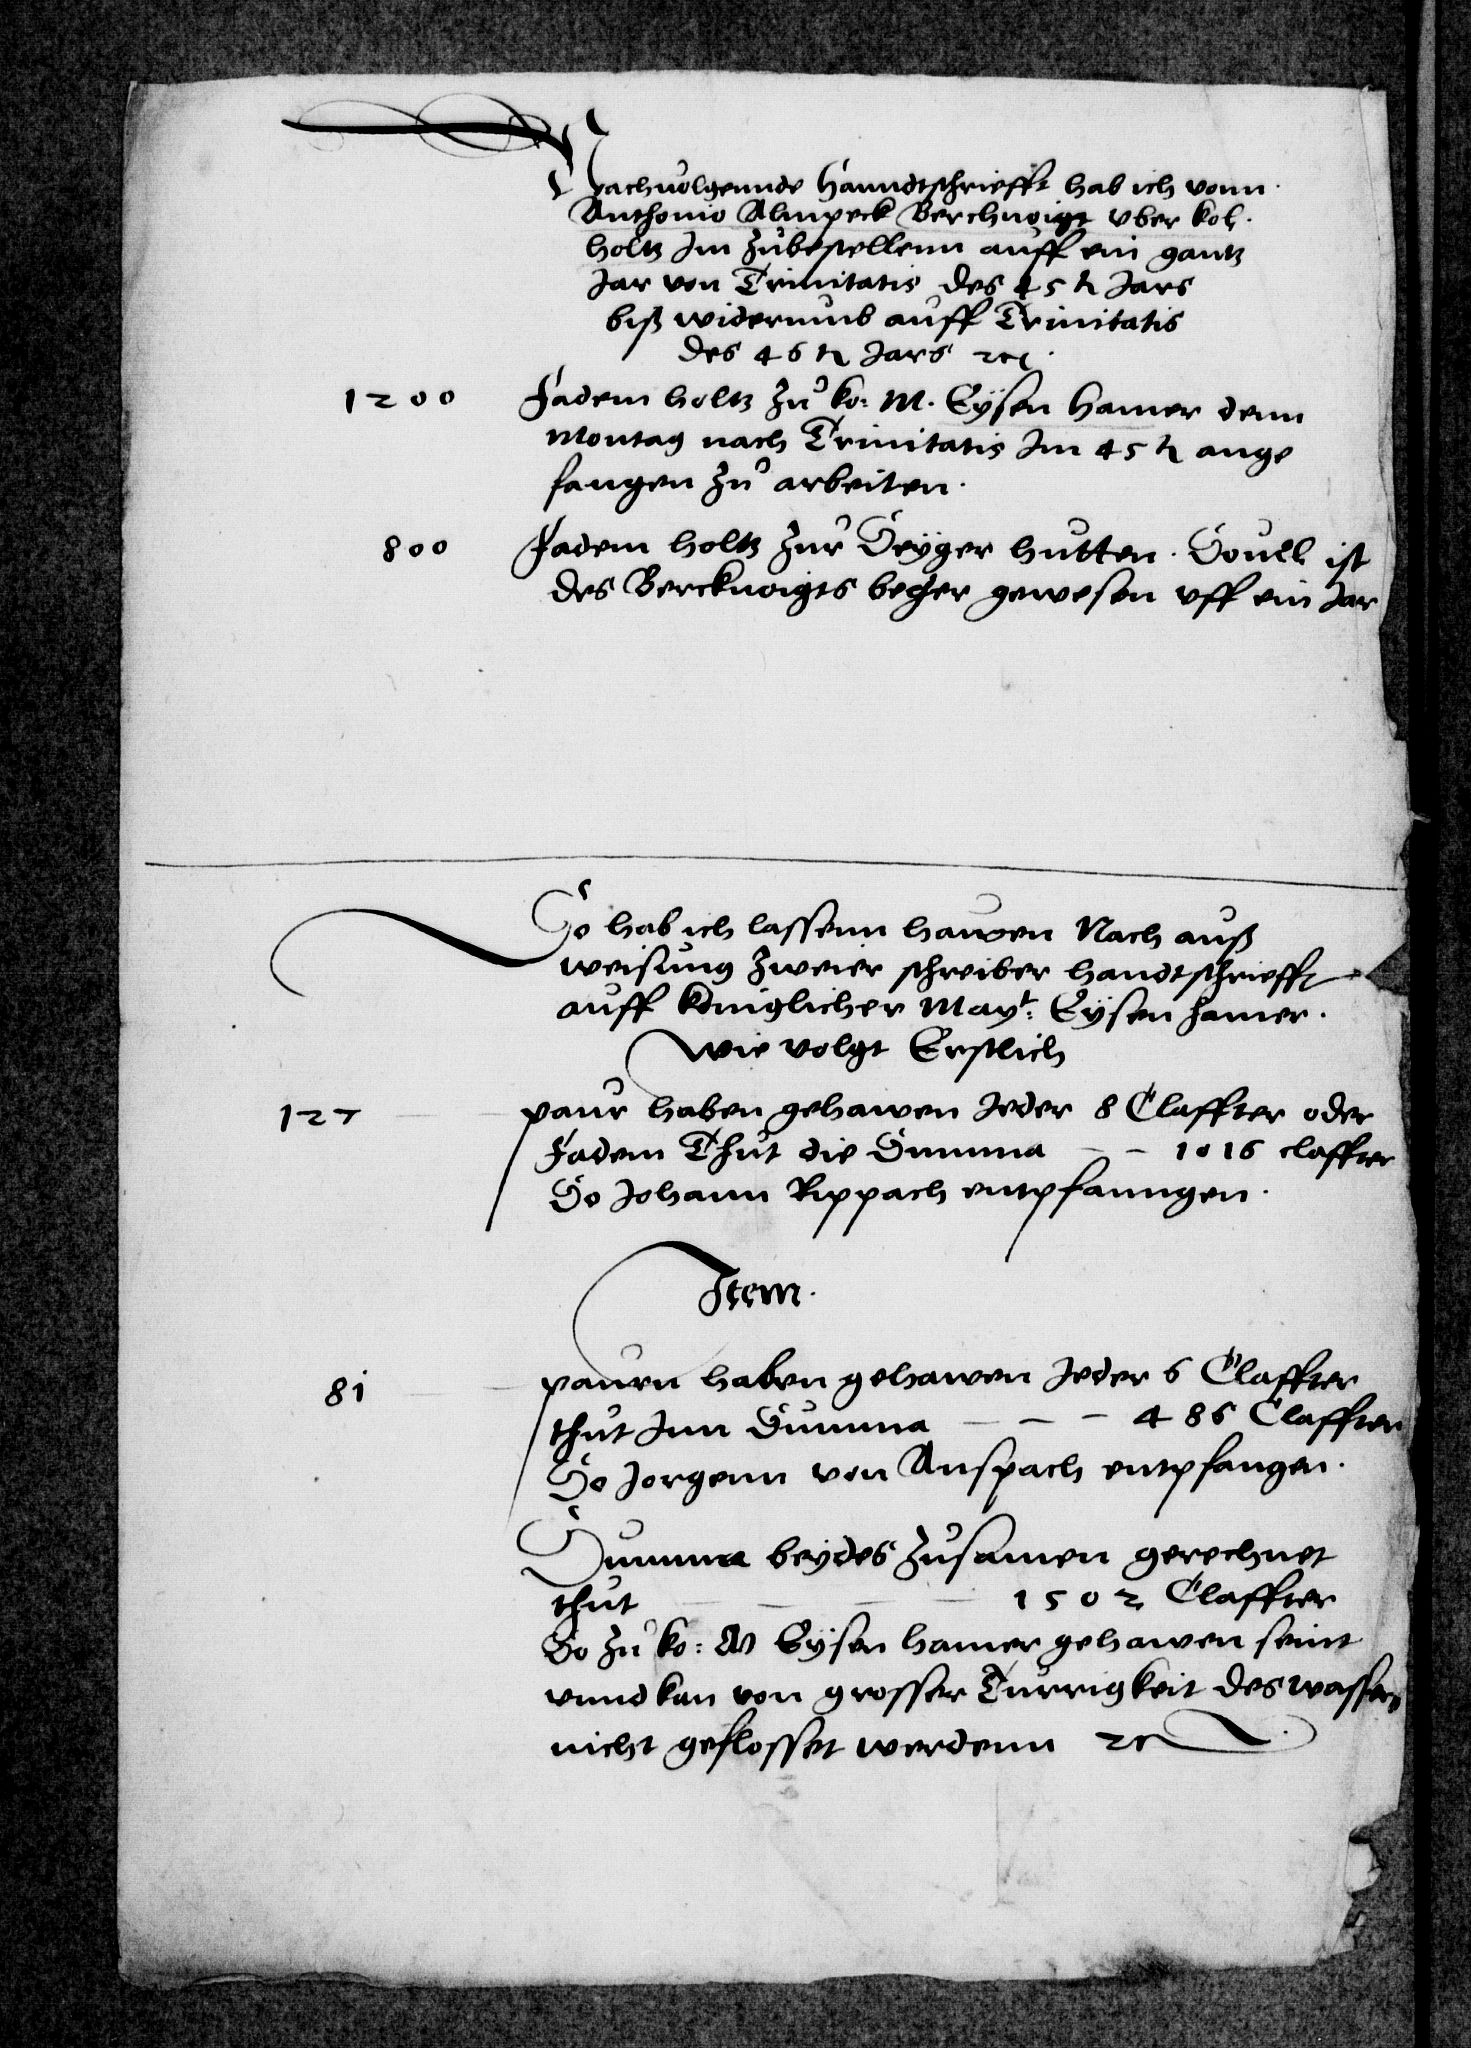 Nachuolgennde Hanndtschriefft hab ich vonn
Anthonio Almpeck Berchuoigt vber kol
holtz Im zubestellenn auff ein gantz
Jar von Trinitatis des 45 tn Jars
biß widerumb auff Trinitatis
des 46 tn Jars etc.
1200 Fadem holtz zu ko: M. Eÿsen Hamer denn
Montag nach Trinitatis Im 45 tn ange
fangen zu arbeiten.
800 Fadem holtz zur Seÿger hutten. Souil ist
des Berckuoigts beger gewesen vff ein Jar
So hab ich lassenn hawen Nach auß
weisung zweier schreiber handtschriefft
auff koniglicher Mayt: Eÿsen hamer.
Wie volgt Erstlich
127 paur haben gehawen Jeder 8 Claffter oder
Fadem Thut die Summa — — 1016 claffter
So Johann Rippach entpfanngen.
Item.
81 paurn haben gehawen Jeder 6 Claffter
thut Inn Summa — — — 486 Claffter
So Jorgenn von Anspach entpfangen.
Summa beÿdes zusamen gerechnet
thut — — — — 1502 Claffter
So zu ko: M Eÿsen hamer gehawen seint
vnnd kan von grosser Turrigkeit des wassers
nicht geflosset werdenn etc